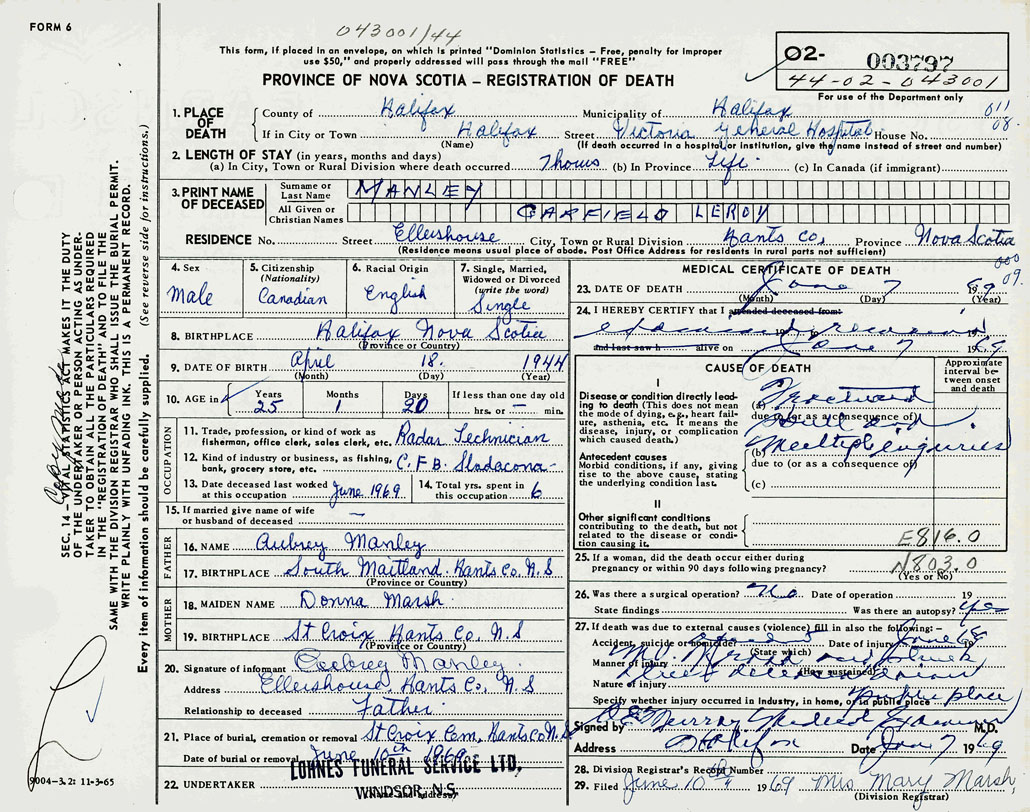 FORM 6
043001/44
This form, if placed in an envelope, on which is printed "Dominion Statistics – Free, penalty for improper
use $50," and properly addressed will pass through the mail "FREE"
PROVINCE OF NOVA SCOTIA – REGISTRATION OF DEATH
02- 003797
44-02-043001
For use of the Department only
SEC. 14 – VITAL STATISTICS ACT MAKES IT THE DUTY
OF THE UNDERTAKER OR PERSON ACTING AS UNDER-
TAKER TO OBTAIN ALL THE PARTICULARS REQUIRED
IN THE "REGISTRATION OF DEATH" AND TO FILE THE
SAME WITH THE DIVISION REGISTRAR WHO SHALL ISSUE THE BURIAL PERMIT.
WRITE PLAINLY WITH UNFADING INK. THIS IS A PERMANENT RECORD.
Every item of information should be carefully supplied. (See reverse side for instructions.)
1. PLACE OF DEATH County of Halifax Municipality of Halifax 011
If in City or Town Halifax Street Victoria General Hospital House No. 08.
(Name) (If death occurred in a hospital or institution, give the name instead of street and number)
2. LENGTH OF STAY (in years, months and days)
(a) In City, Town or Rural Division where death occurred 7 hours (b) In Province Life. (c) In Canada (if immigrant)
3. PRINT NAME OF DECEASED Surname or Last Name MANLEY
All Given or Christian Names GARFIELD LEROY
RESIDENCE No. Street Ellershouse City, Town or Rural Division Hants Co, Province Nova Scotia
(Residence means usual place of abode. Post Office Address for residents in rural parts not sufficient)
4. Sex Male
5. Citizenship (Nationality) Canadian
6. Racial Origin English
7. Single, Married, Widowed or Divorced (write the word) Single
8. BIRTHPLACE Halifax Nova Scotia
(Province or Country)
9. DATE OF BIRTH April 18. 1944
(Month) (Day) (Year)
10. AGE in Years 25 Months 1 Days 20 If less than one day old hrs. or — min.
OCCUPATION
11. Trade, profession, or kind of work as fisherman, office clerk, sales clerk, etc. Radar Technician
12. Kind of industry or business, as fishing, bank, grocery store, etc. C.F.B. Stadacona
13. Date deceased last worked at this occupation June 1969
14. Total yrs. spent in this occupation 6
15. If married give name of wife or husband of deceased —
FATHER
16. NAME Aubrey Manley
17. BIRTHPLACE South Maitland Hants Co. N.S
(Province or Country)
MOTHER
18. MAIDEN NAME Donna Marsh.
19. BIRTHPLACE St Croix Hants Co. N.S
(Province or Country)
20. Signature of informant Aubrey Manley
Address Ellershouse Hants Co. N.S
Relationship to deceased Father.
21. Place of burial, cremation or removal St Croix Cem, Hants Co N.S
Date of burial or removal June 10th 1969
22. UNDERTAKER LOHNES FUNERAL SERVICE LTD.
WINDSOR, N.S.
(Name and address)
9004-3.2: 11-3-65
MEDICAL CERTIFICATE OF DEATH 000
09.
23. DATE OF DEATH June 7 1969
(Month) (Day) (Year)
24. I HEREBY CERTIFY that I attended deceased from:
19 to
and last saw h alive on June 7 1969
CAUSE OF DEATH
Approximate interval between onset and death
I
Disease or condition directly leading to death (This does not mean the mode of dying, e.g., heart failure, asthenia, etc. It means the disease, injury, or complication which caused death.)
(a) Fractured
due to (or as a consequence of)
Skull
(b) Multiple injuries
Antecedent causes
Morbid conditions, if any, giving rise to the above cause, stating the underlying condition last.
due to (or as a consequence of)
(c)
II
Other significant conditions
contributing to the death, but not related to the disease or condition causing it.
E816.0
N803.0
25. If a woman, did the death occur either during
pregnancy or within 90 days following pregnancy?
(Yes or No)
26. Was there a surgical operation? No Date of operation 19
State findings Was there an autopsy? Yes
27. If death was due to external causes (violence) fill in also the following:–
Accident, suicide or homicide? Date of injury June 19
(State which)
Manner of injury
(How sustained)
Nature of injury
Specify whether injury occurred in industry, in home, or in public place public place
Signed by Murray Medical Examiner M.D.
Address Halifax Date June 7 1969
28. Division Registrar's Record Number
29. Filed June 10th 1969 Mrs Mary Marsh,
(Division Registrar)